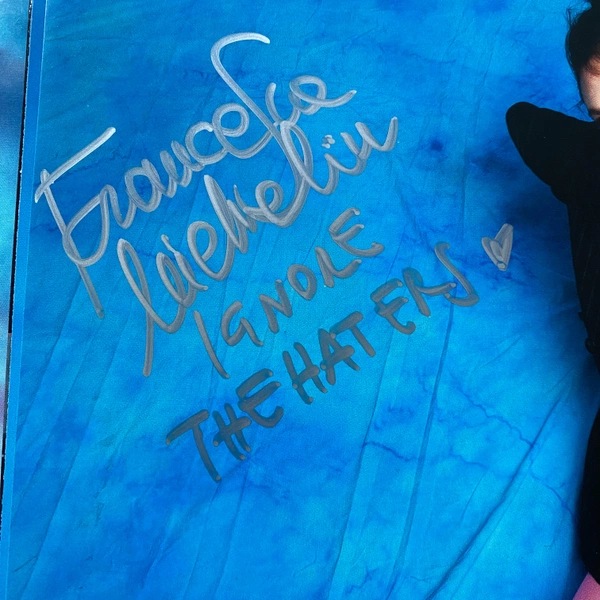 Francesca
Michielin
IGNORE
THE HATERS ♥